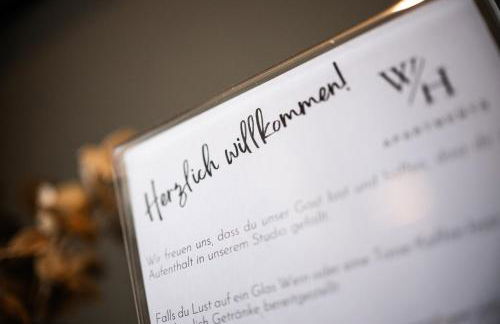 W/H
APARTMENTS
Herzlich willkommen!
Wir freuen uns, dass du unser Gast bist und hoffen, dass
Aufenthalt in unserem Studio gefällt.
Falls du Lust auf ein Glas Wein oder eine Tasse
Getränke bereitgestellt.